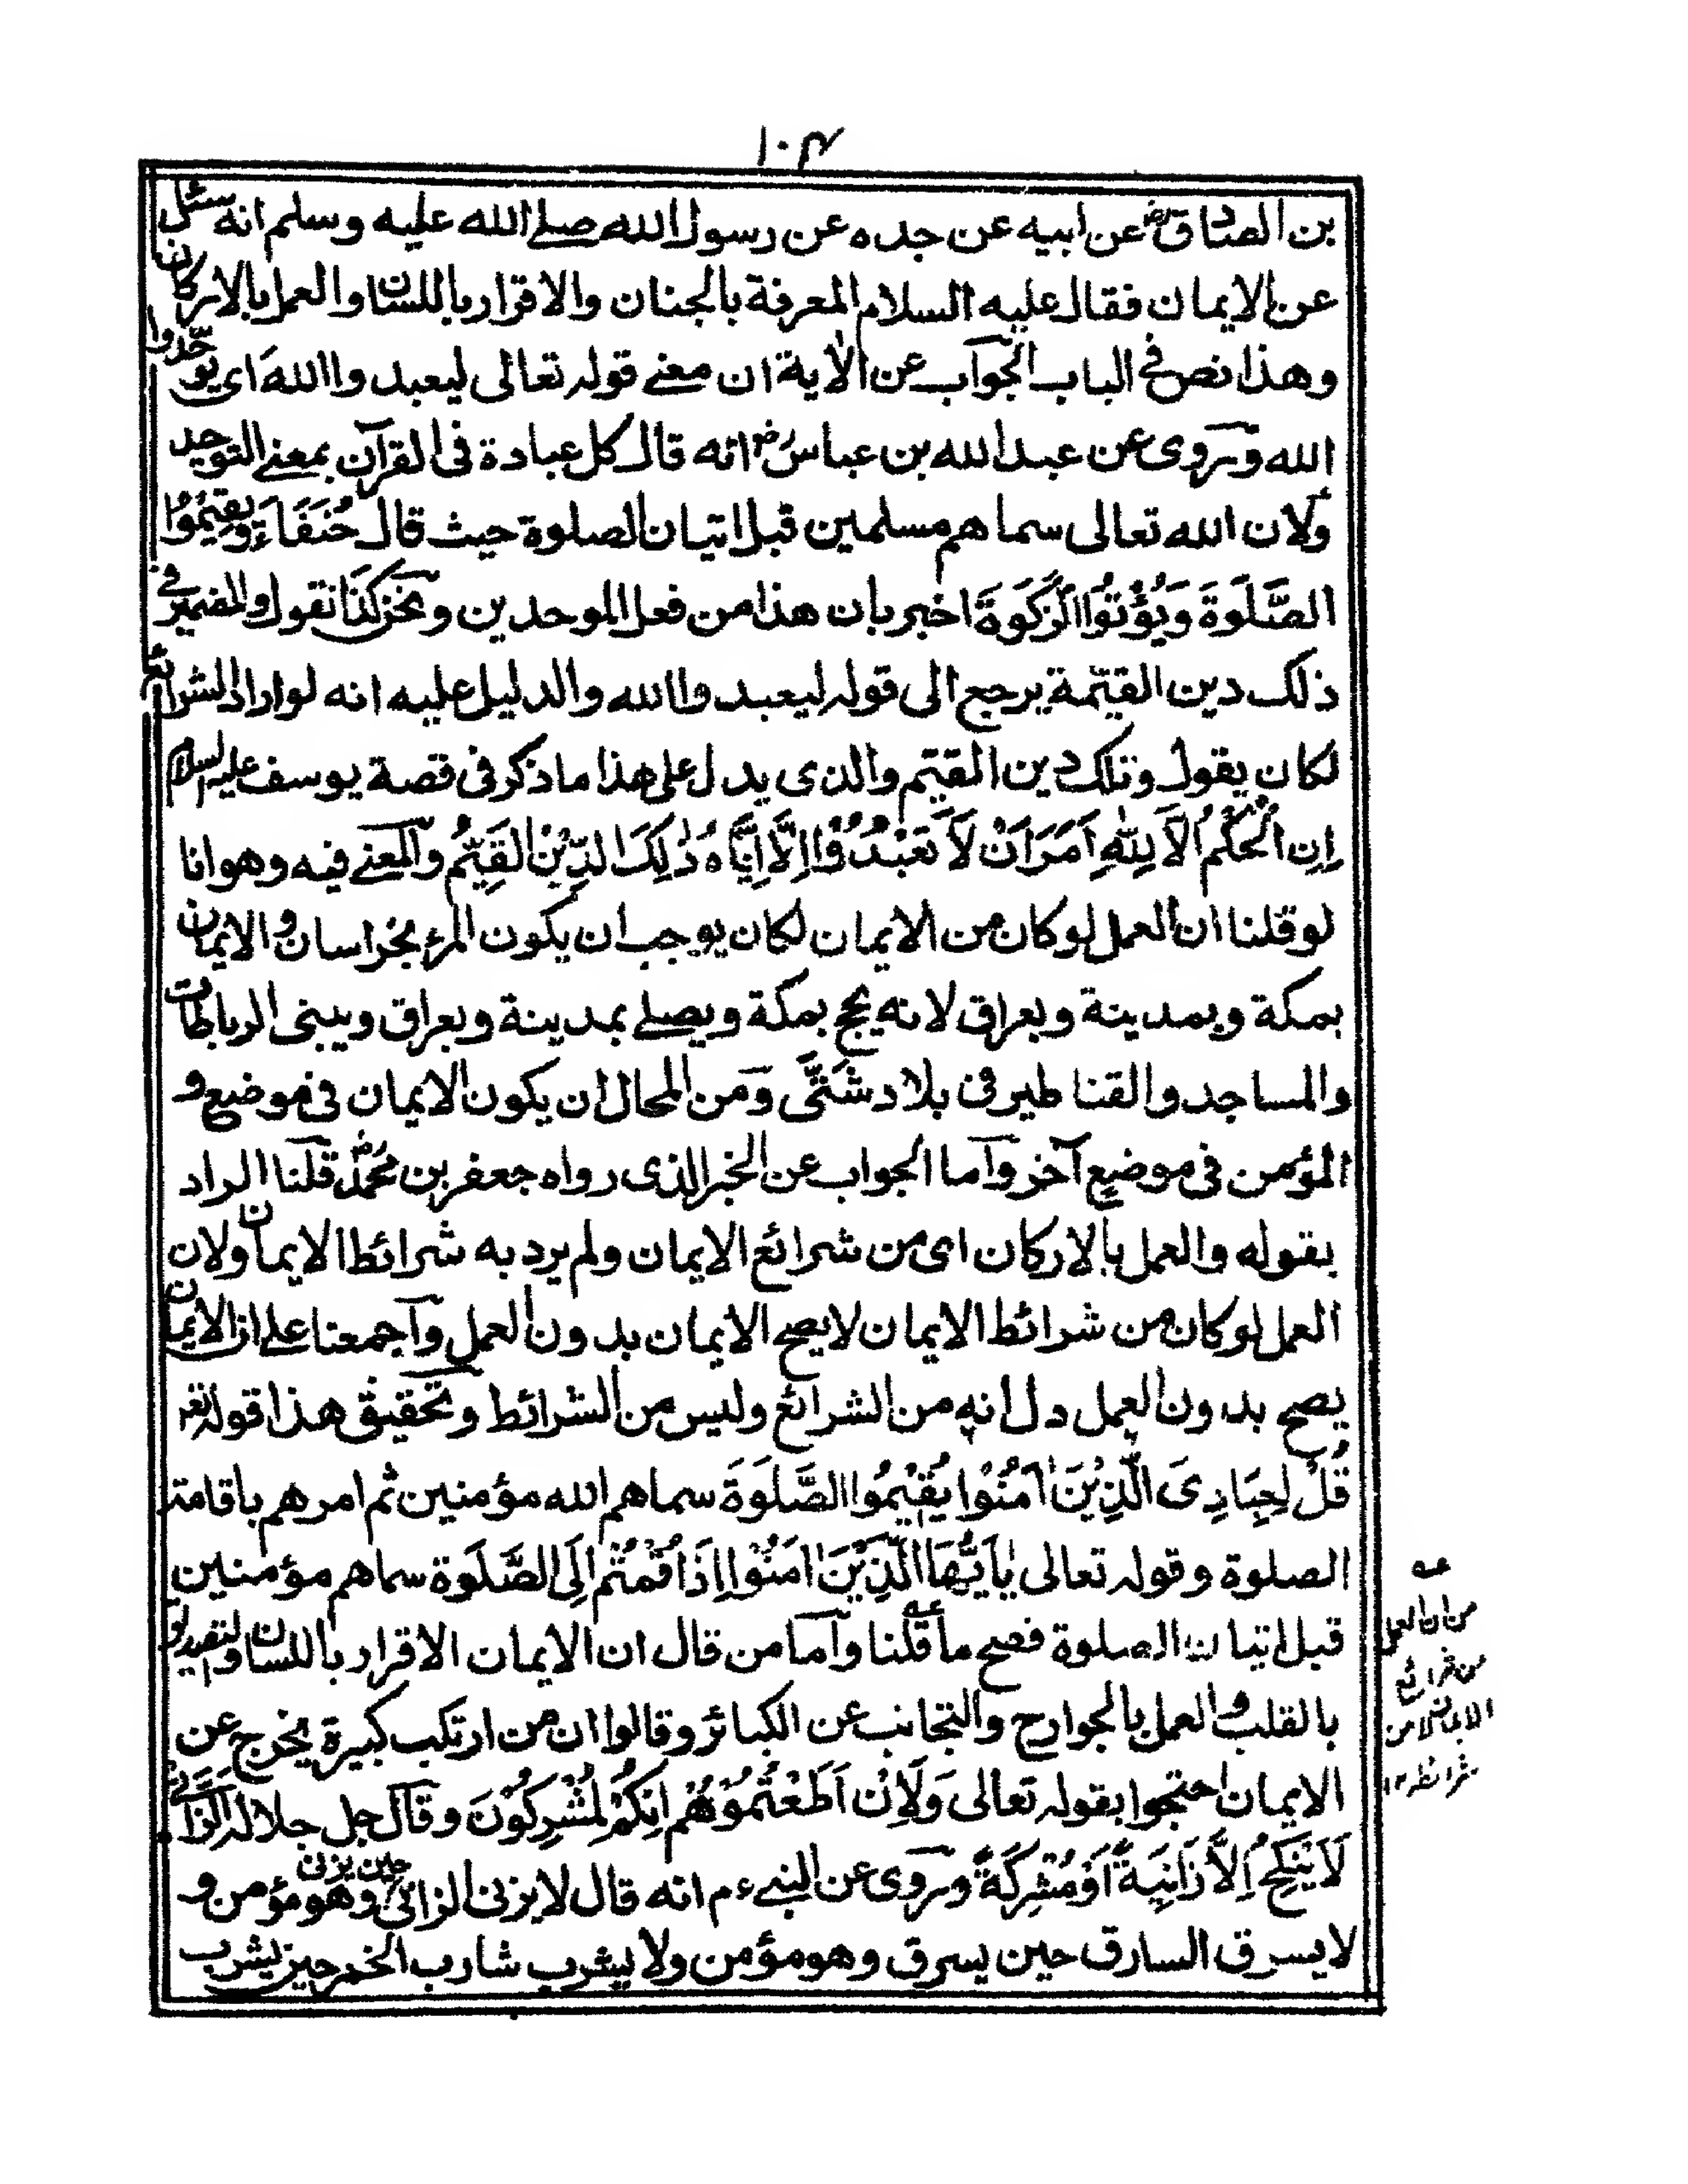 ١٠٣
بن الصادق رض عن ابيه عن جده عن رسول الله صلے الله عليه وسلم انه سئل
عن الايمان فقال عليه السلام المعرفة بالجنان والاقرار باللسان والعمل بالاركان
وهذا نص فے الباب الجوآب عن الأية ان معنے قوله تعالى ليعبدوا اللهَ اى يوحّدوا
الله وروى عن عبد الله بن عباس رض انه قال كل عبادة فى القرآن بمعنے التوحيد
ولان الله تعالى سماهم مسلمين قبل اتيان الصلوة حيث قال حُنَفَاءَ وَيُقِيْمُوا
الصَّلٰوةَ وَيُؤْتُوا الزَّكٰوةَ اخبر بان هذا من فعل الموحدين ونحن كذا نقول والضمير فى
ذلك دين القيّمة يرجع الى قوله ليعبدوا الله والدليل عليه انه لو اراد الشرائع
لكان يقول وتلك دين القيّم والذى يدل على هذا ما ذكر فى قصة يوسف عليه السلام
اِنِ الْحُكْمُ اِلَّا لِلّٰهِ اَمَرَ اَنْ لَا تَعْبُدُوْا اِلَّا اِيَّاهُ ذٰلِكَ الدِّيْنُ الْقَيِّمُ والمعنے فيه وهو انا
لو قلنا ان العمل لو كان من الايمان لكان يوجب ان يكون المرء بخراسان والايمان
بمكة وبمدينة وبعراق لانه يحج بمكة ويصلے بمدينة وبعراق ويبنى الرباطات
والمساجد والقناطير فى بلاد شَتّٰى وَمن المحال ان يكون الايمان فى موضع و
المؤمن فى موضع آخر وآما الجواب عن الخبر الذى رواه جعفر بن محمّد رض قلنا الراد
بقوله والعمل بالاركان اى من شرائع الايمان ولم يرد به شرائط الايمان ولان
العمل لو كان من شرائط الايمان لا يصح الايمان بدون العمل وآجمعنا علے ان الايمان
يصح بدون العمل دل انه من الشرائع وليس من الشرائط وتحقيق هذا قوله تعه
قُلْ لِعِبَادِىَ الَّذِيْنَ اٰمَنُوْا يُقِيْمُوا الصَّلٰوةَ سماهم الله مؤمنين ثم امرهم باقامة
الصلوة وقوله تعالى يٰاَيُّهَا الَّذِيْنَ اٰمَنُوْا اِذَا قُمْتُمْ اِلَى الصَّلٰوة سماهم مؤمنين
قبل اتيان الصلوة فصح ما قلنا عـه وآما من قال ان الايمان الاقرار باللسان والتصديق
بالقلب والعمل بالجوارح والتجانب عن الكبائر وقالوا ان من ارتكب كبيرة يخرج عن
الايمان احتجوا بقوله تعالى وَلَاِنْ اَطَعْتُمُوْهُمْ اِنَّكُمْ لَمُشْرِكُوْنَ وقال جل جلاله اَلزَّانِىْ
لَا يَنْكِحُ اِلَّا زَانِيَةً اَوْ مُشْرِكَةً وروى عن النبے ءم انه قال لا يزنى الزانى حين يزنى وهو مؤمن و
لا يسرق السارق حين يسرق وهو مؤمن ولا يشرب شارب الخمر حين يشرب
عـه
من ان العمل
من شرائع
الايمان لا من
شرائطه ١٢